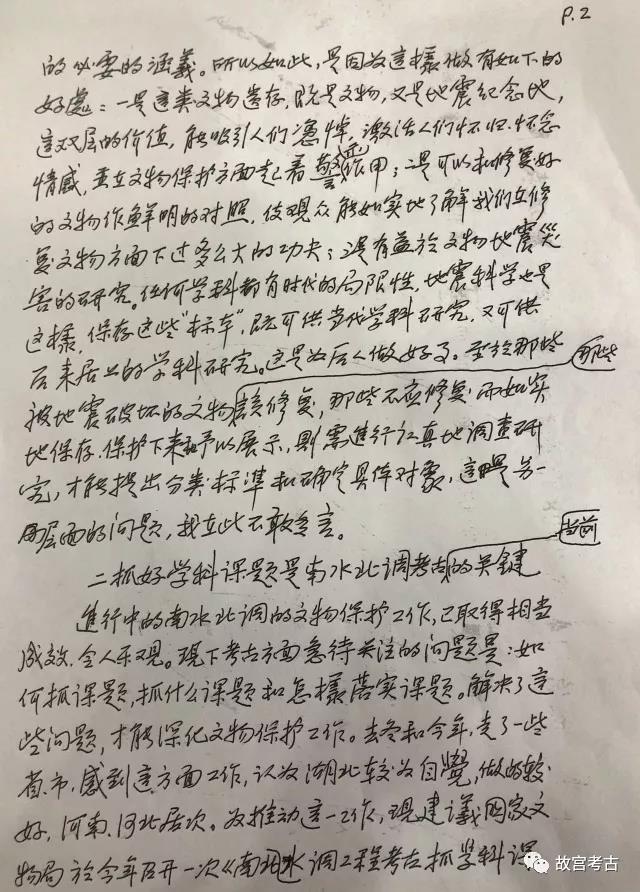 P.2
的必要的涵義。所以如此，是因为這樣做有如下的
好處：一是這类文物遗存，既是文物，又是地震纪念地，
這双层的价值，能吸引人们凭悼，激活人们怀旧、怀念
情感，并在文物保护方面起着警示作用；二是可以和修复好
的文物作鮮明的对照，使观众能如实地了解我们在修
复文物方面下过多么大的功夫；三是有益於文物地震災
害的研究。任何学科都有时代的局限性，地震科学也是
这樣，保存这些"标本"，既可供当代学科研究，又可供
后来居上的学科研究。这是为后人做好事。至於那些
那些
被地震破坏的文物該修复，那些不应修复而如实
地保存、保护下来和予以展示，則需進行认真地调查研
究，才能提出分类标準和确定具体对象，這是另一
层面的问题，我在此不敢多言。
当前
二抓好学科课题是南水北调考古的关键
進行中的南水北调的文物保护工作，已取得相当
成效，令人乐观。现下考古方面急待关注的问题是：如
何抓课题，抓什么课题和怎樣落实课题。解决了這
些问题，才能深化文物保护工作。去冬和今年，走了一些
省、市，感到這方面工作，认为湖北较为自覺，做的较
好，河南、河北居次。为推动這一工作，現建议國家文
物局於今年召开一次《南北水调工程考古抓学科课
故宫考古